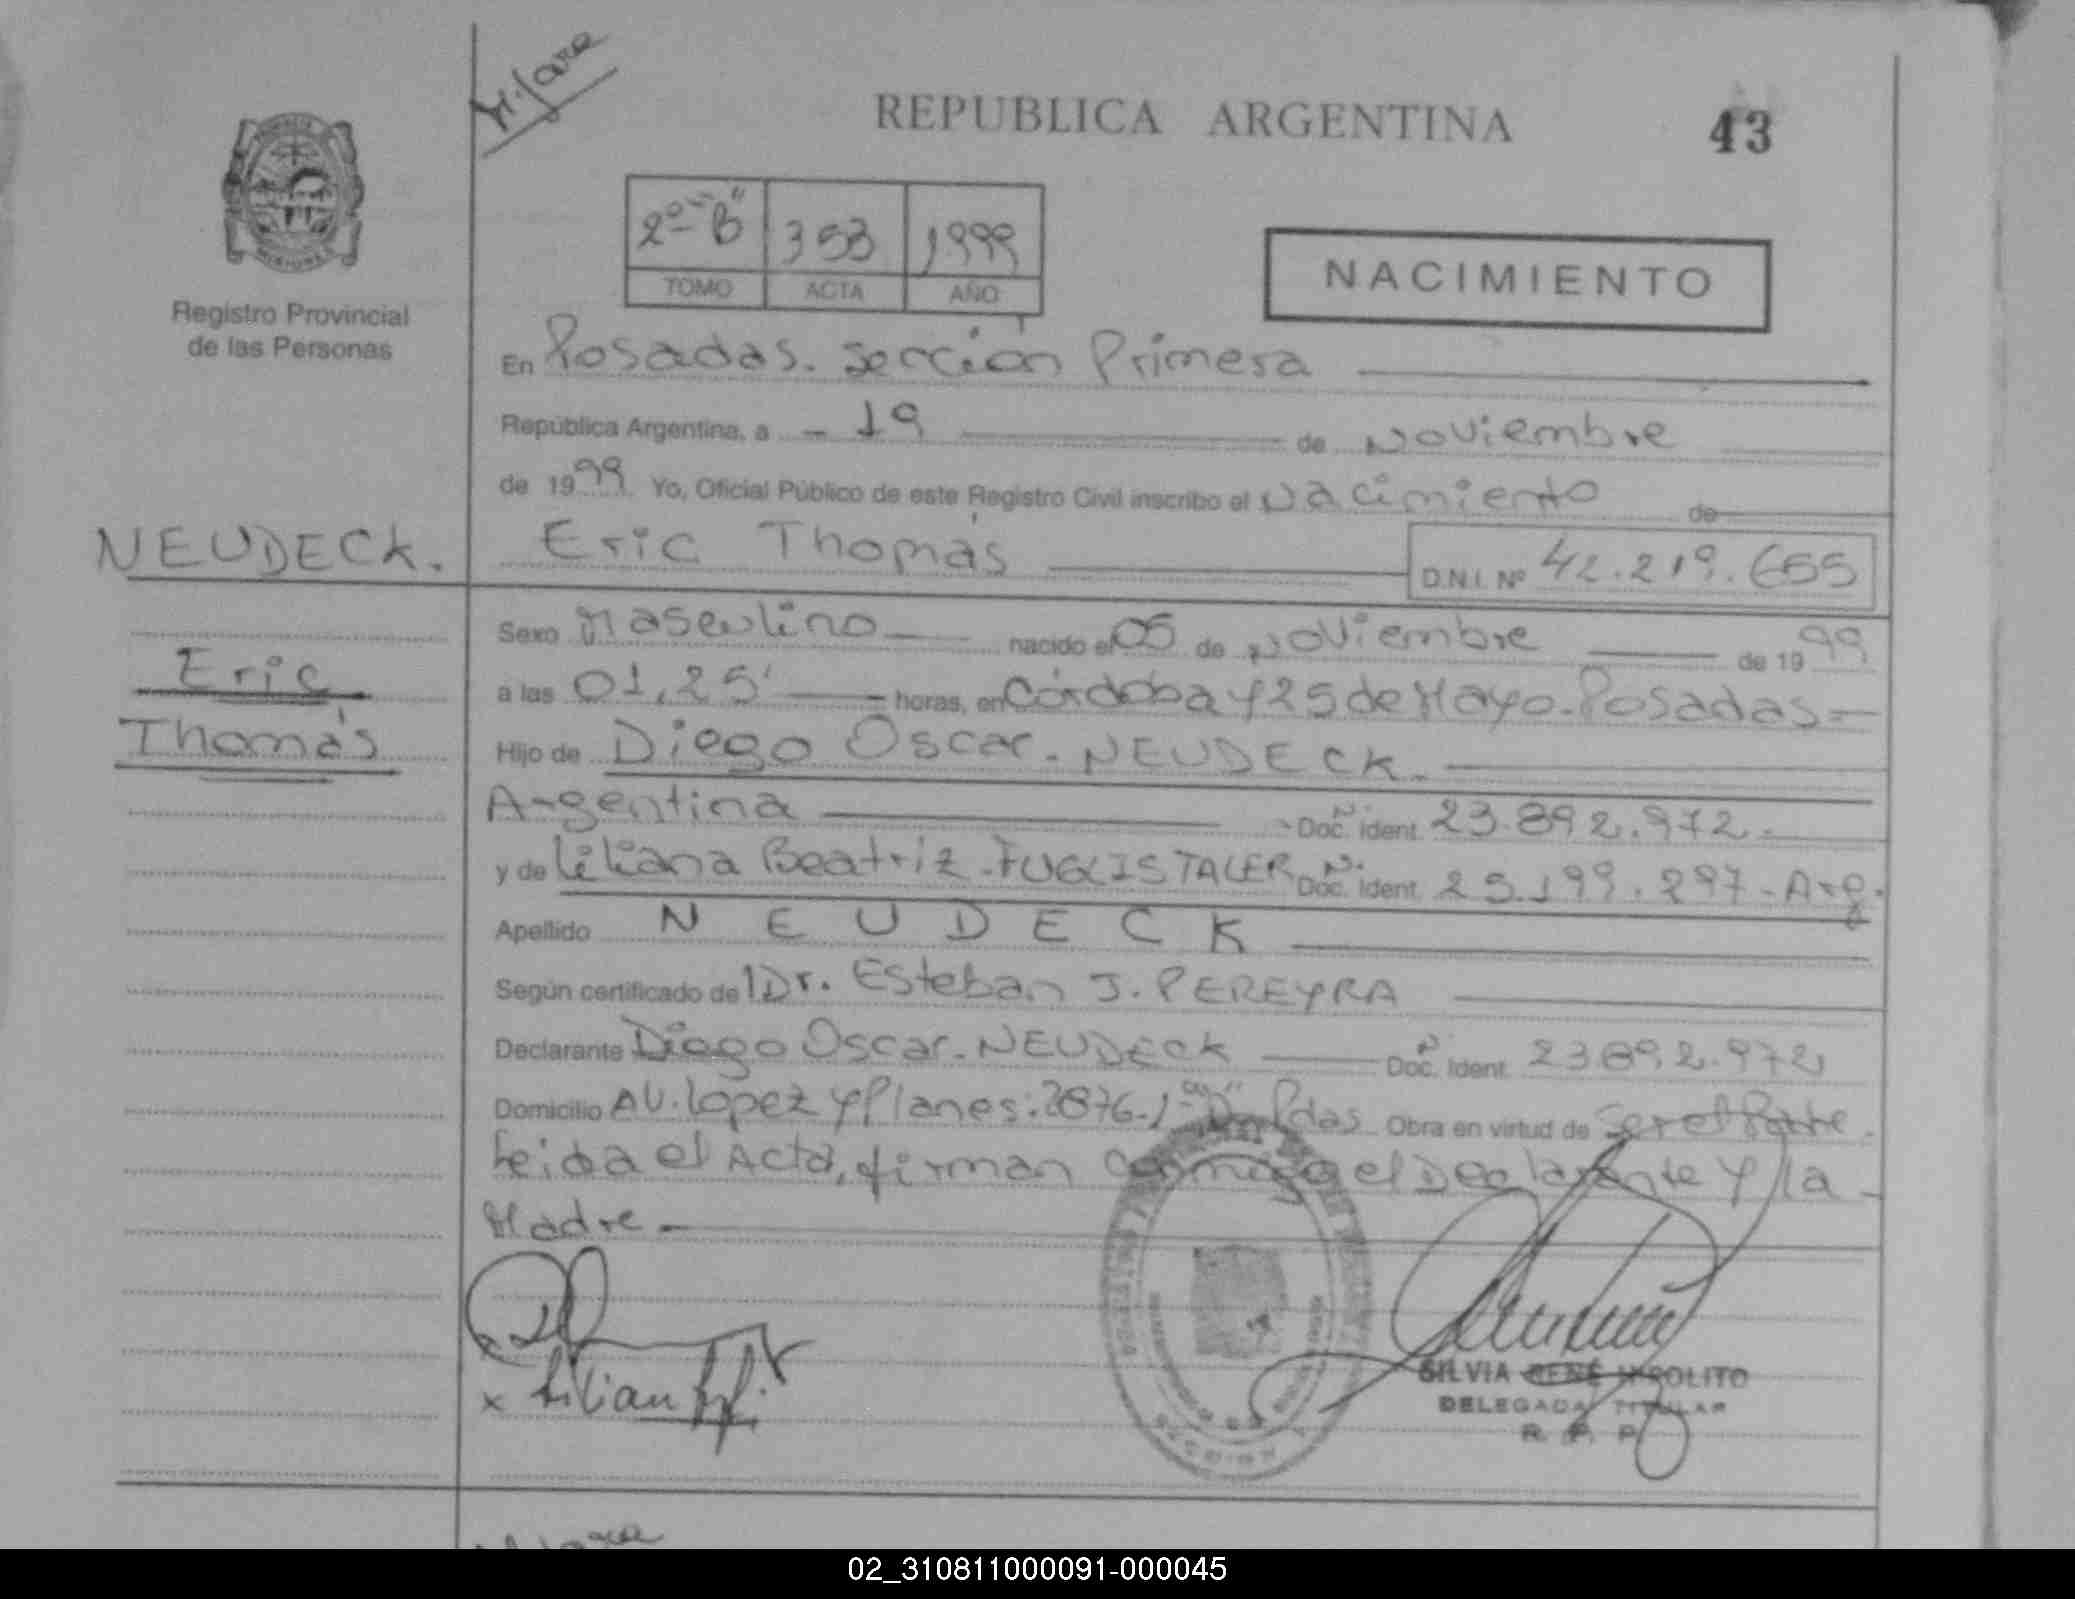 REPUBLICA ARGENTINA
43
2º "B" 353 1999
TOMO ACTA AÑO
NACIMIENTO
Registro Provincial
de las Personas
En Posadas. Sección Primera
República Argentina, a - 19 de Noviembre
de 1999 Yo, Oficial Público de este Registro Civil inscribo el Nacimiento de
NEUDECK.
Eric Thomás D.N.I. Nº 42.219.655
Eric
Thomás
Sexo Masculino nacido el 05 de Noviembre de 1999
a las 01,25' horas, en Córdoba y 25 de Mayo. Posadas
Hijo de Diego Oscar. NEUDECK.
Argentina Nº Doc. Ident. 23.892.972.
y de Liliana Beatriz. FUGLISTALER Nº Doc. Ident. 25.199.297 - Arg.
Apellido NEUDECK
Según certificado del Dr. Esteban J. PEREYRA
Declarante Diego Oscar. NEUDECK Nº Doc. Ident. 23.892.972
Domicilio AV. Lopez y Planes: 2876. 1º "D" Pdas Obra en virtud de Ser el Padre.
Leida el Acta, firman conmigo el Declarante y la
Madre
x Lilian
SILVIA RENÉ HIPOLITO
DELEGADA TITULAR
R. P. P.
02_310811000091-000045